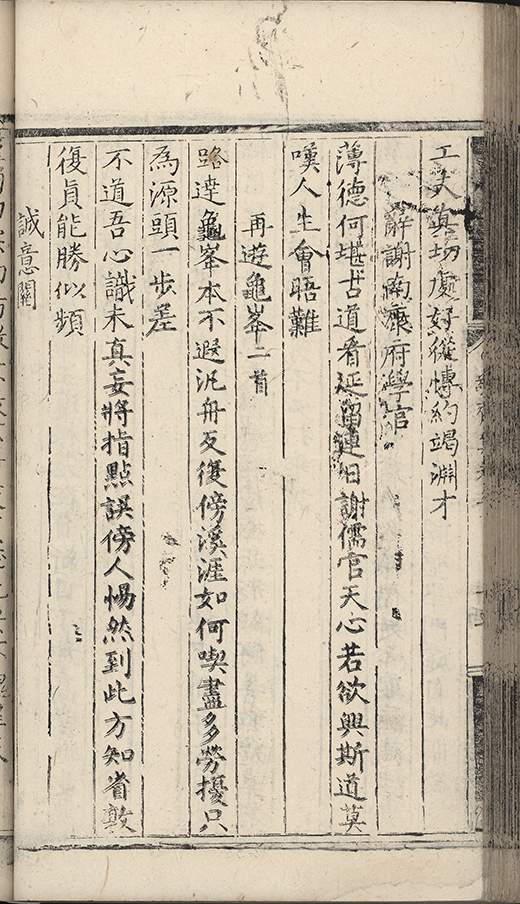 工夫真切處好從博約竭淵才
辭謝南康府學官
薄德何堪古道看延留連日謝儒官天心若欲興斯道莫
嘆人生會晤難
再遊龜峯二首
路逹龜峯本不遐汎舟反復傍溪涯如何喫盡多勞擾只
為源頭一步差
不道吾心識未真妄將指點誤傍人惕然到此方知省敦
復貞能勝似頻
誠意關